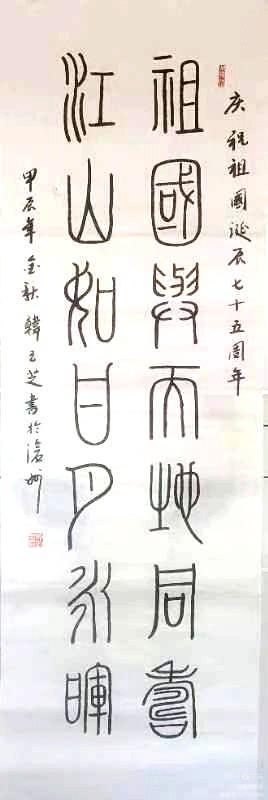 庆祝祖國誕辰七十五周年
祖國與天地同壽
江山如日月永暉
甲辰年金秋韓玉芝書於滄州